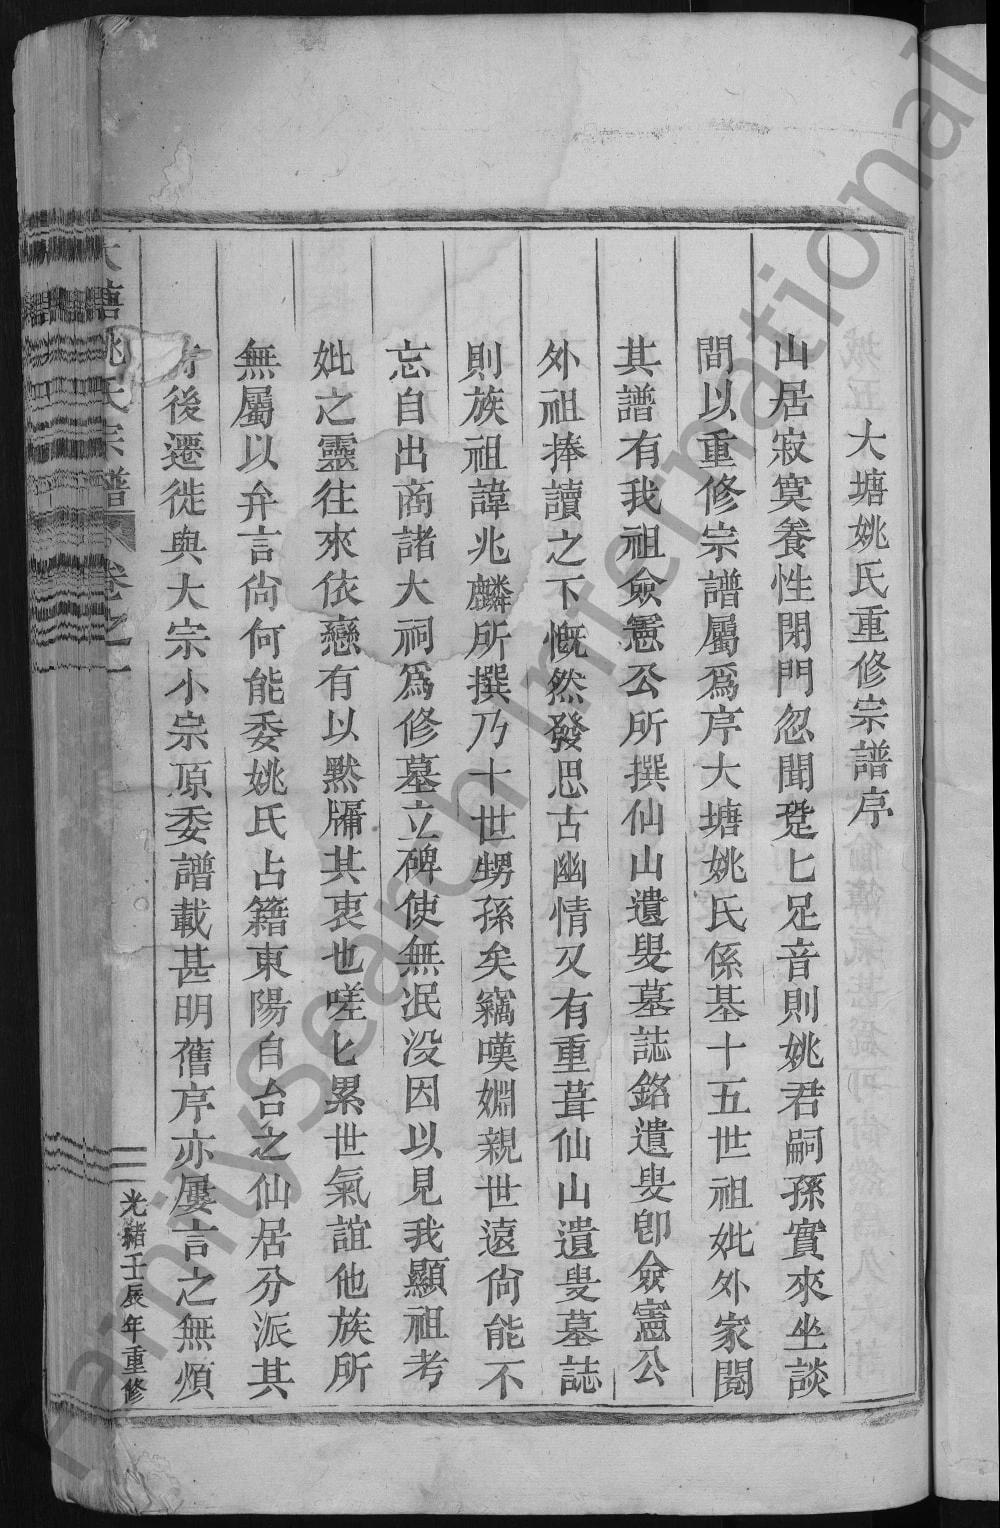 大塘姚氏重修宗譜序
山居寂寞養性閉門忽聞跫匕足音則姚君嗣孫實來坐談
間以重修宗譜屬爲序大塘姚氏係基十五世祖妣外家閱
其譜有我祖僉憲公所撰仙山遺叟墓誌銘遺叟卽僉憲公
外祖捧讀之下慨然發思古幽情又有重葺仙山遺叟墓誌
則族祖諱兆麟所撰乃十世甥孫矣竊嘆婣親世遠尙能不
忘自出商諸大祠爲修墓立碑使無泯没因以見我顯祖考
妣之靈往來依戀有以默牖其衷也嗟匕累世氣誼他族所
無屬以弁言尙何能委姚氏占籍東陽自台之仙居分派其
後遷徙與大宗小宗原委譜載甚明舊序亦屢言之無煩
大塘姚氏宗譜 卷之一
光緒壬辰年重修
FamilySearch International